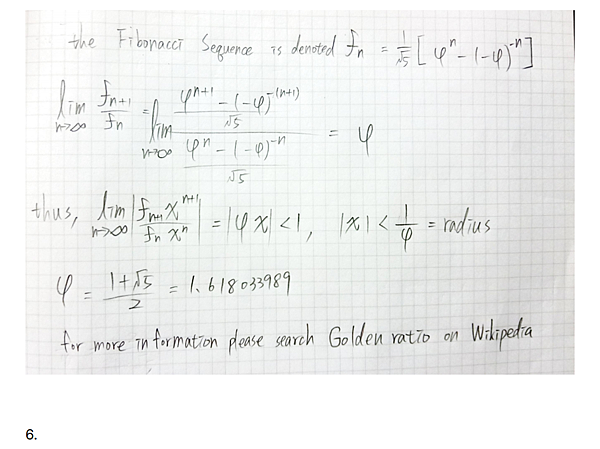 the Fibonacci Sequence is denoted fₙ = 1/√5 [φⁿ - (-φ)⁻ⁿ]
lim n→∞ fₙ₊₁/fₙ = lim n→∞ ((φⁿ⁺¹ - (-φ)⁻⁽ⁿ⁺¹⁾)/√5)/((φⁿ - (-φ)⁻ⁿ)/√5) = φ
thus, lim n→∞ |fₙ₊₁xⁿ⁺¹/fₙ xⁿ| = |φx| < 1, |x| < 1/φ = radius
φ = (1+√5)/2 = 1.618033989
for more information please search Golden ratio on Wikipedia
6.